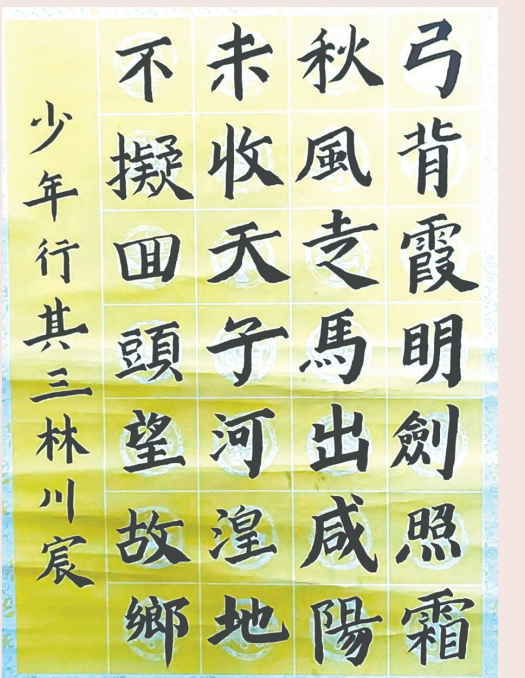 弓背霞明劍照霜
秋風走馬出咸陽
未收天子河湟地
不擬回頭望故鄉
少年行其三林川宸